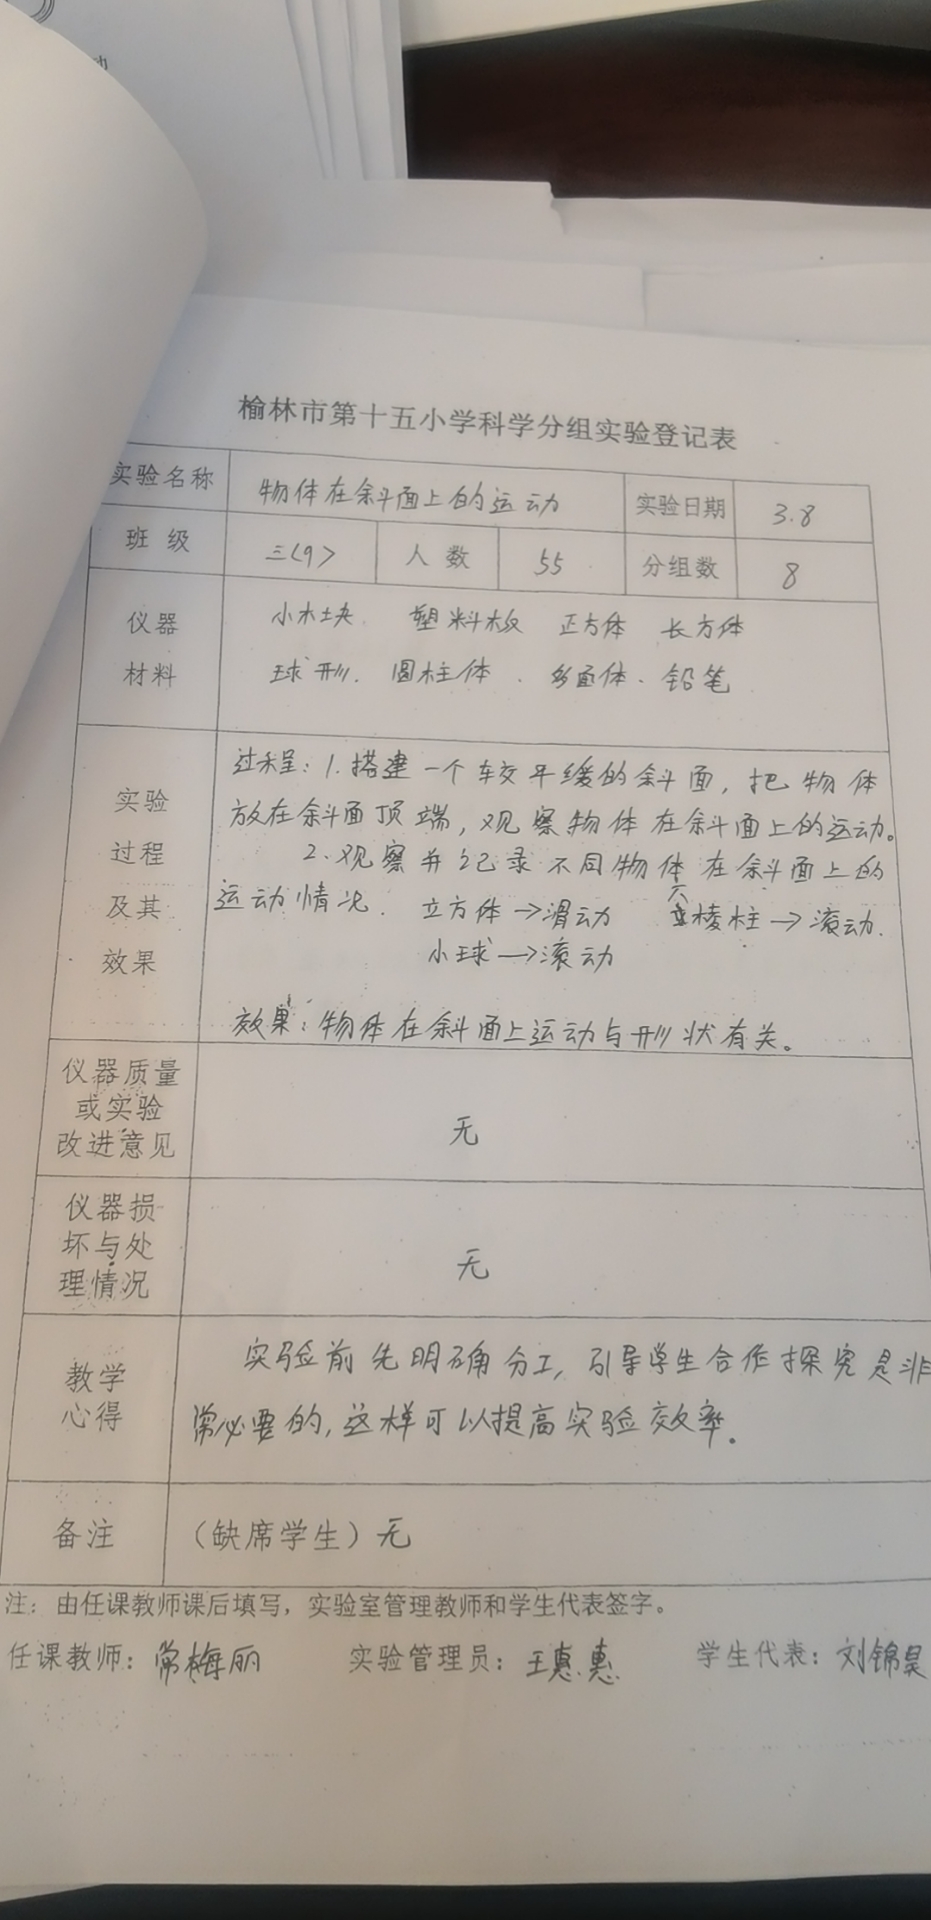 榆林市第十五小学科学分组实验登记表
实验名称 物体在斜面上的运动 实验日期 3.8
班级 三<9> 人数 55 分组数 8
仪器 小木块 塑料板 正方体 长方体
材料 球形. 圆柱体. 多面体. 铅笔
过程: 1. 搭建一个较平缓的斜面, 把物体
实验
放在斜面顶端, 观察物体在斜面上的运动。
过程 2. 观察并记录不同物体在斜面上的
及其 运动情况. 立方体→滑动 六棱柱→滚动.
效果 小球→滚动
效果: 物体在斜面上运动与形状有关。
仪器质量
或实验
改进意见 无
仪器损
坏与处
理情况 无
教学 实验前先明确分工, 引导学生合作探究是非
心得 常必要的, 这样可以提高实验效率.
备注 (缺席学生) 无
注: 由任课教师课后填写, 实验室管理教师和学生代表签字。
任课教师: 常梅丽 实验管理员: 王惠惠 学生代表: 刘锦昊